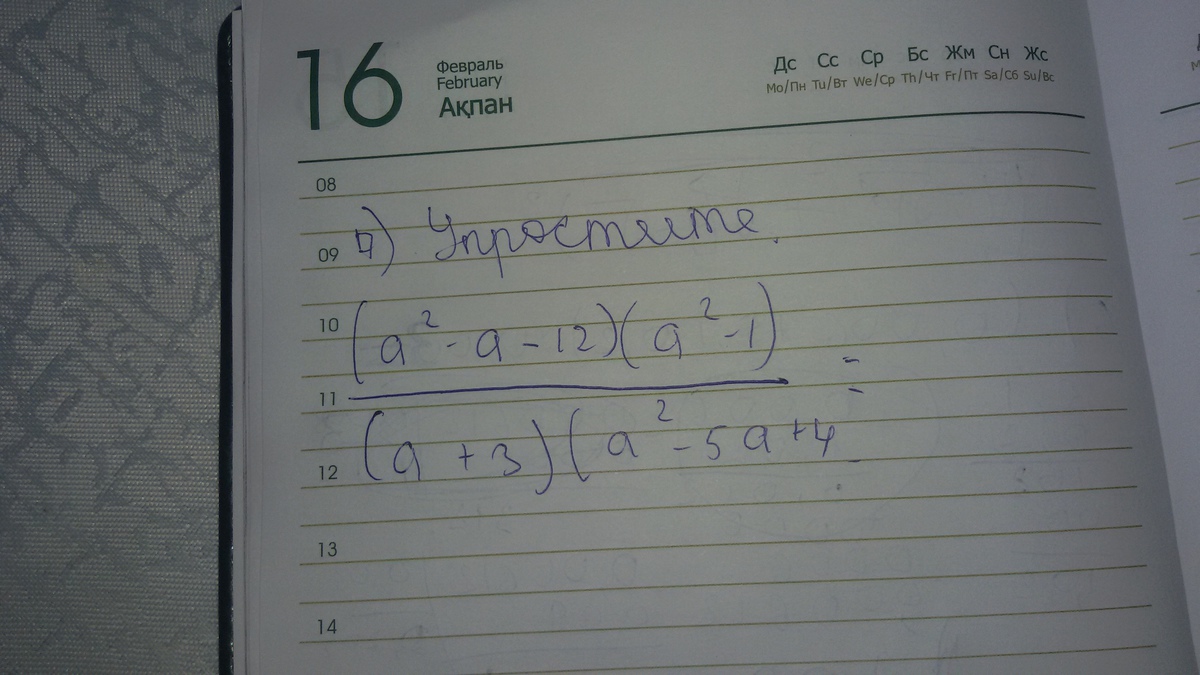 16
Февраль
February
Ақпан
Дс Сс Ср Бс Жм Сн Жс
Mo/Пн Tu/Вт We/Ср Th/Чт Fr/Пт Sa/Сб Su/Вс
08
09
Упростите.
10
(a² - a - 12)(a² - 1)
=
11
(a + 3)(a² - 5a + 4
12
13
14